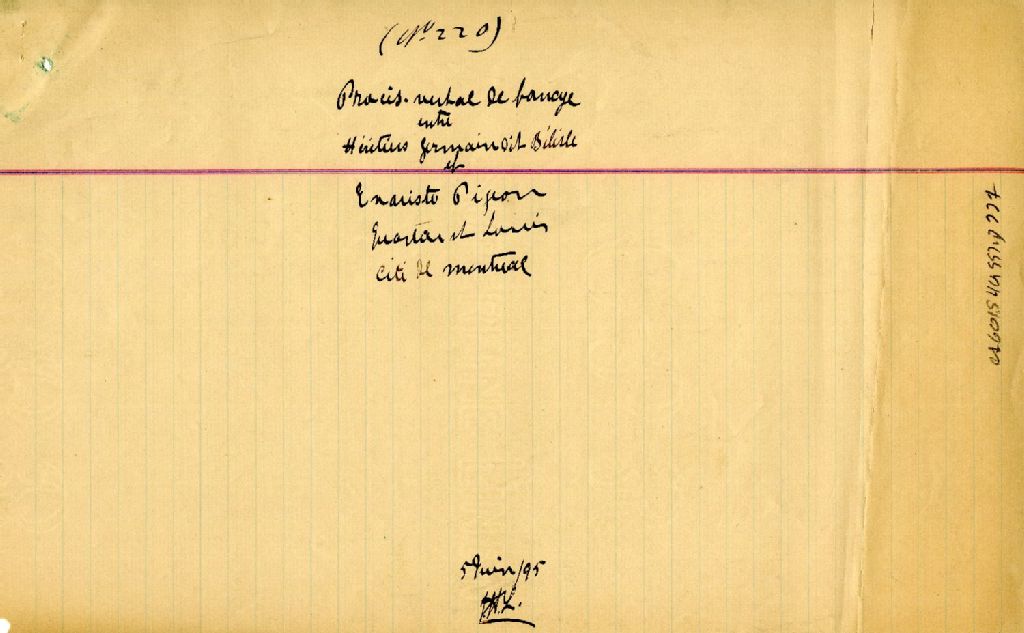 (No 220)
Procès-verbal de bornage
entre
Héritiers Germain dit Bélisle
et
Evariste Pigeon
Quartier St Louis
Cité de Montréal
5 Juin/95